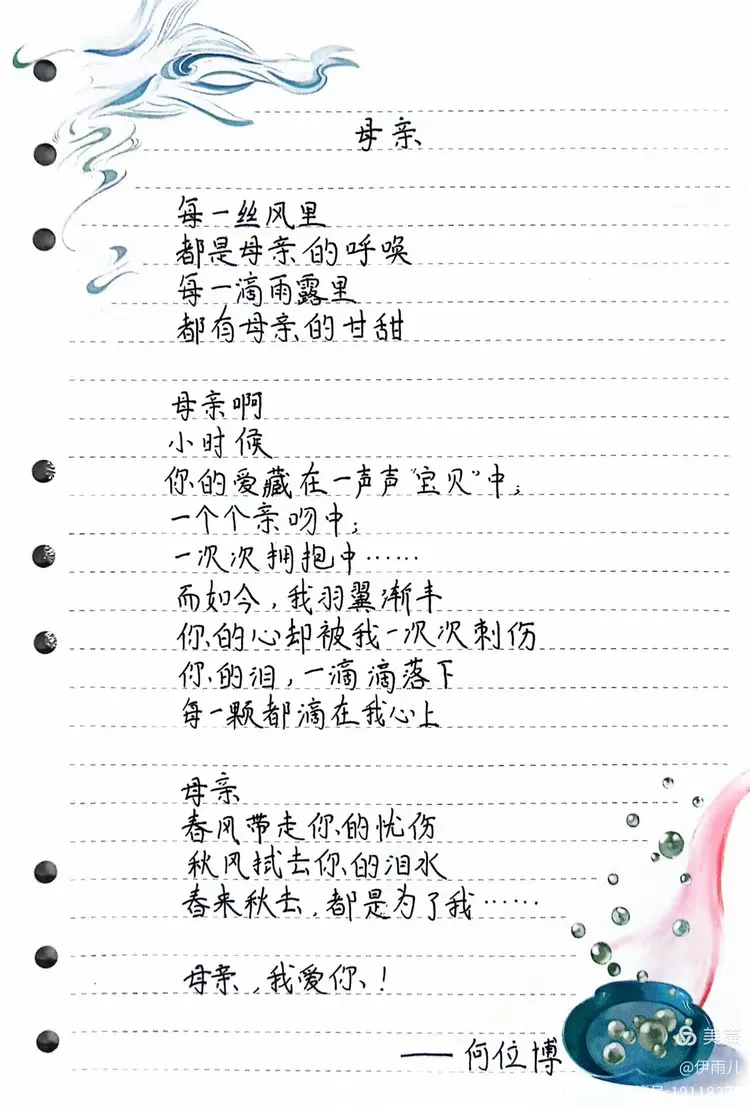 母亲
每一丝风里
都是母亲的呼唤
每一滴雨露里
都有母亲的甘甜
母亲啊
小时候
你的爱藏在一声声“宝贝”中；
一个个亲吻中；
一次次拥抱中……
而如今，我羽翼渐丰
你的心却被我一次次刺伤
你的泪，一滴滴落下
每一颗都滴在我心上
母亲
春风带走你的忧伤
秋风拭去你的泪水
春来秋去，都是为了我……
母亲，我爱你！
——何位博
美篇
@伊雨儿